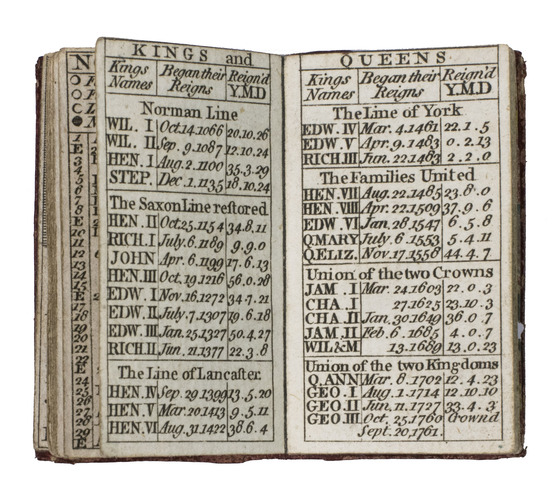 KINGS and
Kings Names Began their Reigns Reign'd Y.M.D
Norman Line
WIL. I Oct.14.1066 20.10.26
WIL. II Sep.9.1087 12.10.24
HEN. I Aug.2.1100 35.3.29
STEP. Dec.1.1135 18.10.24
The Saxon Line restored
HEN. II Oct.25.1154 34.8.11
RICH. I July.6.1189 9.9.0
JOHN Apr.6.1199 17.6.13
HEN. III Oct.19.1216 56.0.28
EDW. I Nov.16.1272 34.7.21
EDW. II July.7.1307 19.6.18
EDW. III Jan.25.1327 50.4.27
RICH. II Jun.21.1377 22.3.8
The Line of Lancaster.
HEN. IV Sep.29.1399 13.5.20
HEN. V Mar.20.1413 9.5.11
HEN. VI Aug.31.1422 38.6.4
QUEENS
Kings Names Began their Reigns Reign'd Y.M.D
The Line of York
EDW. IV Mar.4.1461 22.1.5
EDW. V Apr.9.1483 0.2.13
RICH. III Jun.22.1483 2.2.0
The Families United
HEN. VII Aug.22.1485 23.8.0
HEN. VIII Apr.22.1509 37.9.6
EDW. VI Jan.28.1547 6.5.8
Q.MARY July.6.1553 5.4.11
Q.ELIZ. Nov.17.1558 44.4.7
Union of the two Crowns
JAM. I Mar.24.1603 22.0.3
CHA. I 27.1625 23.10.3
CHA. II Jan.30.1649 36.0.7
JAM. II Feb.6.1685 4.0.7
WIL&M 13.1689 13.0.23
Union of the two Kingdoms
Q.ANN Mar.8.1702 12.4.23
GEO. I Aug.1.1714 12.10.10
GEO. II Jun.11.1727 33.4.3
GEO. III Oct.25.1760 Crownd
Sept.20,1761.